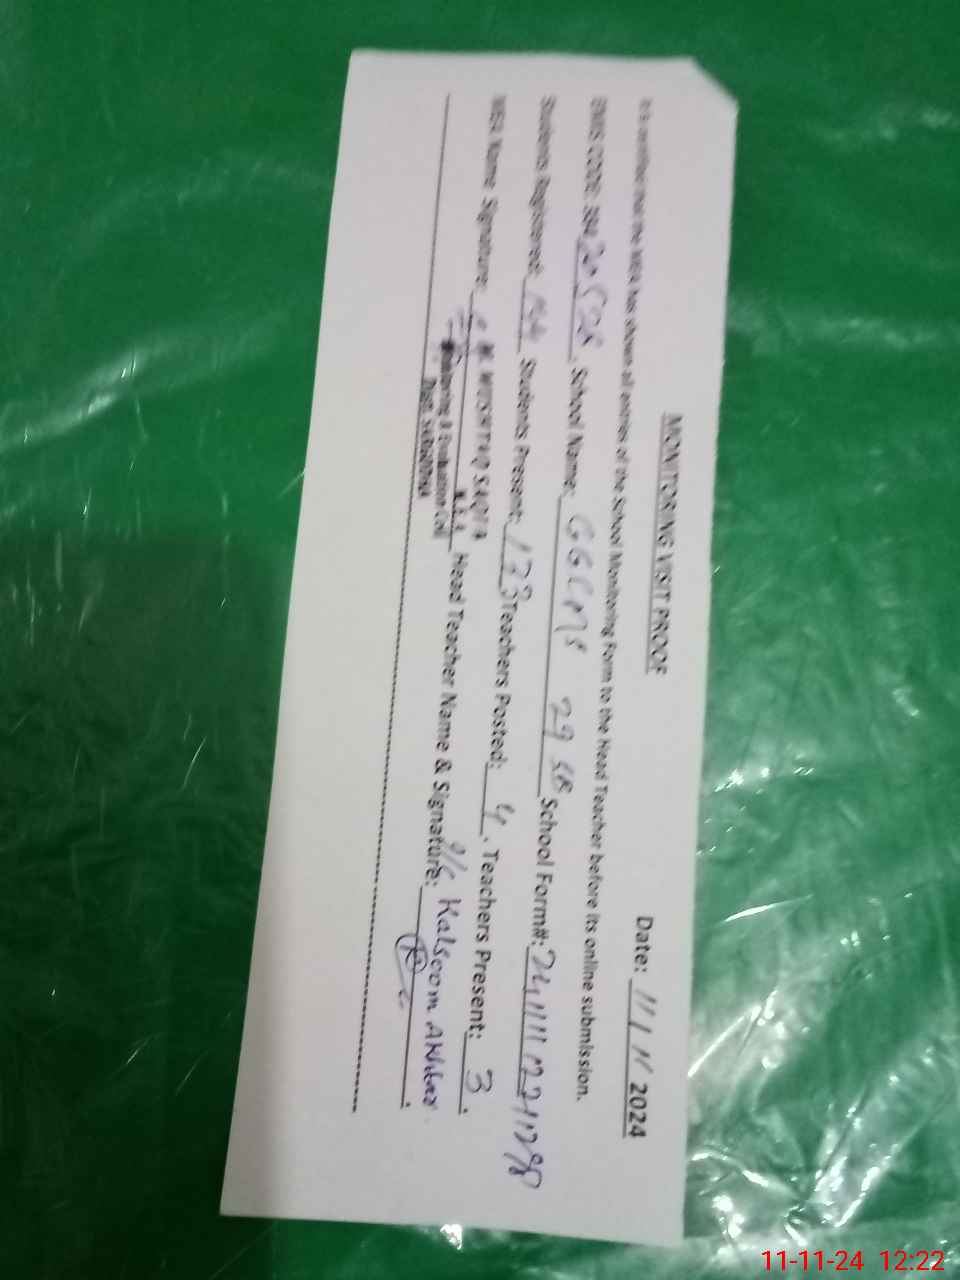 MONITORING VISIT PROOF
Date: 11/11/2024
It is certified that the MEA has shown all entries of the School Monitoring Form to the Head Teacher before its online submission.
EMIS CODE: 384 School Name: GGCMS 29 SB School Form#:
Students Registered: Students Present: 133 Teachers Posted: 4. Teachers Present: 3.
MEA Name Signature: M. MUSHTAQ SAQIB Head Teacher Name & Signature: O/C Kalsoom Akhtar.
M.E.A
Monitoring & Evaluation Cell
Distt. SARGODHA
11-11-24 12:22